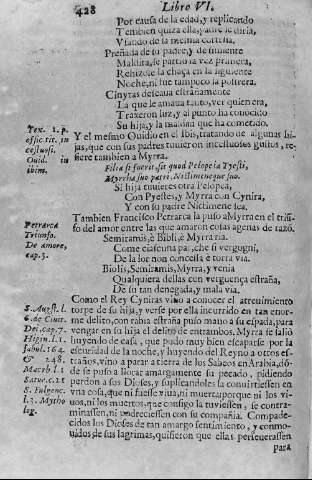 428
Libro VI.
Por causa de la edad, y replicando
Tambien quiza ella, padre le diria,
Vsando de la mesma cortesia.
Preñada de su padre, y de simiente
Maldita, se partio la vez primera,
Rehizose la choça en la siguiente
Noche, ni fue tampoco la postrera.
Cinyras desseaua estrañamente
La que le amaua tanto, ver quien era,
Traxeron luz, y al punto ha conocido
Su hija, y la maldad que ha cometido.
Tex. 1. p.
offic. tit. in
cestuosi.
Ouid. in
ibim.
Y el mesmo Ouidio en el Ibis, tratando de algunas hi-
jas, que con sus padres tuuieron incestuosos gustos, re-
fiere tambien a Myrra.
Filia si fuerit, sit quod Pelopeia Tyesti,
Myrrha suo patri, Nictimeneque suo.
Si hija tuuieres otra Pelopea,
Con Tyestes, y Myrra con Cynira,
Y con su padre Nictimene sea.
Petrarca
Triunfo.
De amore,
cap. 3.
Tambien Francisco Petrarca la puso a Myrra en el triũ-
fo del amor entre las que amaron cosas agenas de razõ.
Semiramis, è Bibli, è Myrra ria.
Come ciascuna par, che si vergogni,
De la lor non concessa è torta via.
Biblis, Semiramis, Myrra, y venia
Qualquiera dellas con verguença estraña,
De su tan denegada, y mala via.
S. Augst. l.
6. de Ciui.
Dei, cap. 7.
Higin. l. 1.
fabul. 164.
& 248.
Macrb l. 1
Satur. c. 21
S. Fulgenc.
l. 3. Mytho
log.
Como el Rey Cyniras vino a conocer el atreuimiento
torpe de su hija, y verse por ella incurrido en tan enor-
me delito, con rabia estraña puso mano a su espada, para
vengar en su hija el delito de entrambos. Myrra se salio
huyendo de casa, que pudo muy bien escaparse por la
escuridad de la noche, y huyendo del Reyno a otros es-
traños, vino a parar a tierra de los Sabeos en Arabia, dõ-
de se puso a llorar amargamente su pecado, pidiendo
perdon a sus Dioses, y suplicandoles la conuirtiessen en
vna cosa, que ni fuesse viua, ni muerta, porque ni los vi-
uos, ni los muertos, que consigo la tuuiessen, se contra-
minassen, ni podreciessen con su compañia. Compade-
cidos los Dioses de tan amargo sentimiento, y conmo-
uidos de sus lagrimas, quisieron que ellas perseuerassen
para